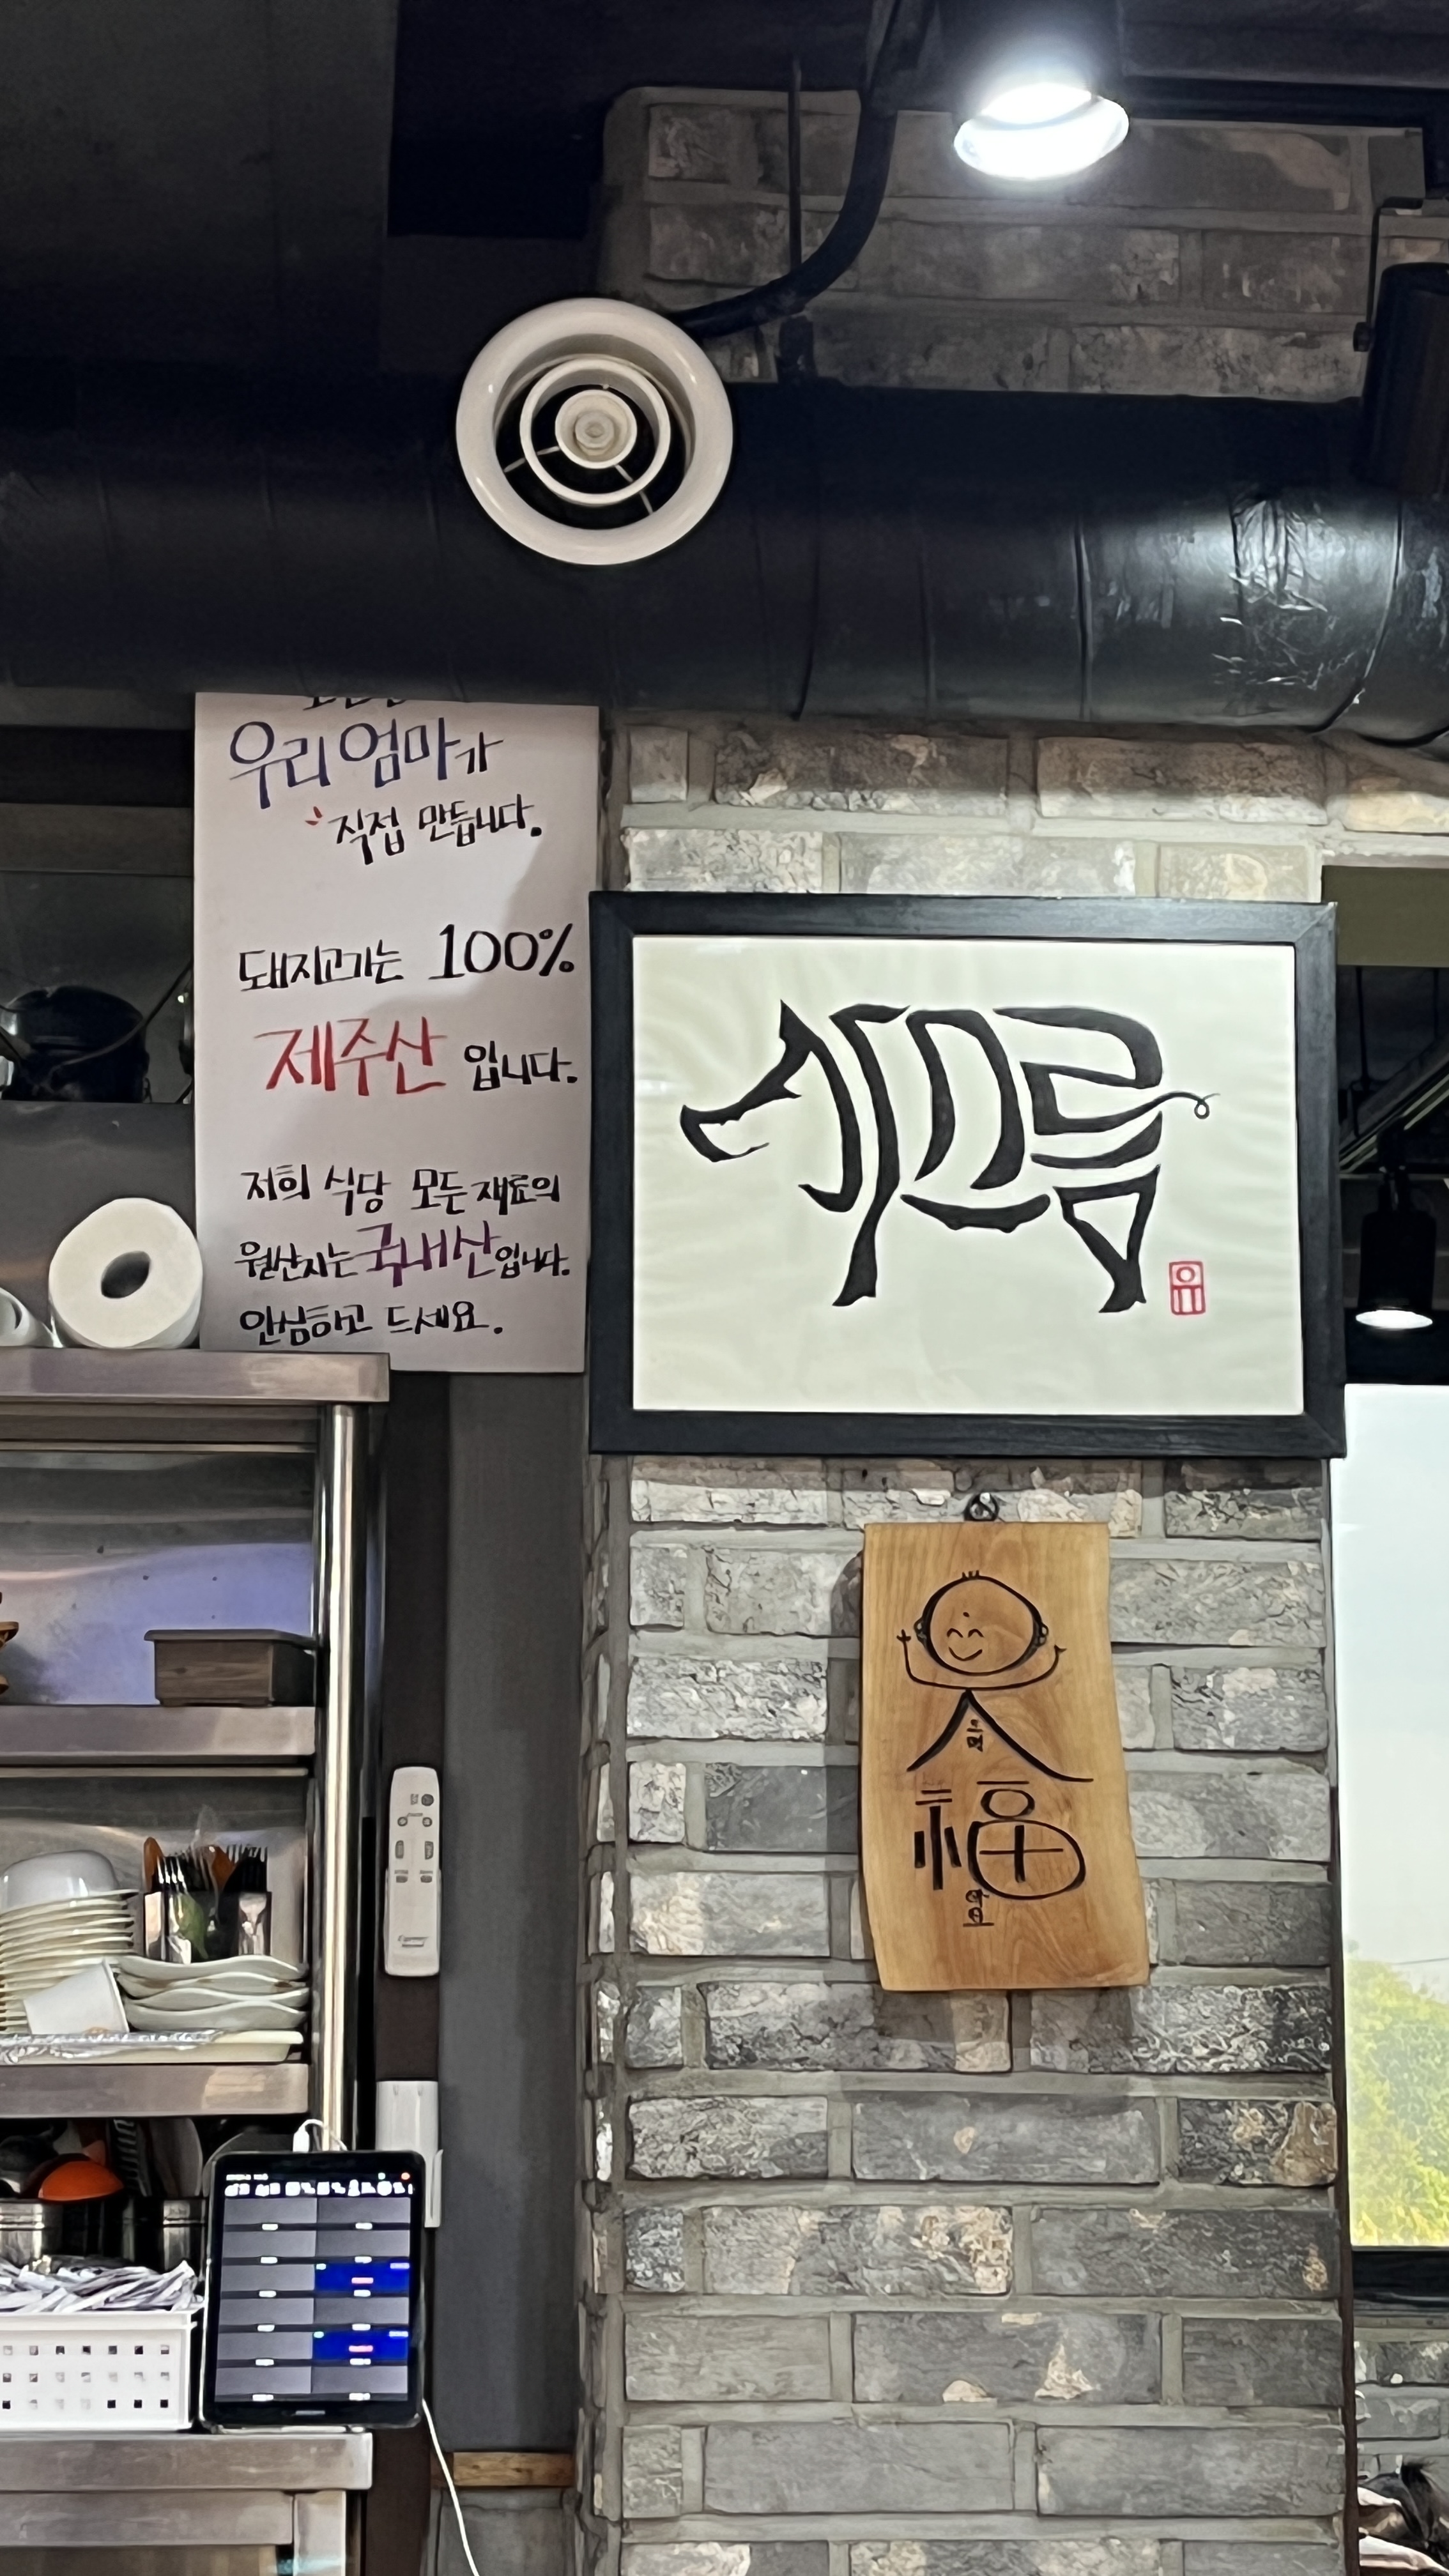 우리 엄마가
직접 만듭니다.
돼지고기는 100%
제주산 입니다.
저희 식당 모든 재료의
원산지는 국내산입니다.
안심하고 드세요.
福